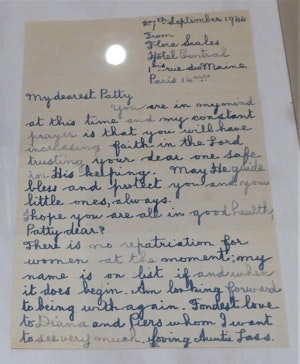 27th September 1944
From
Flora Scales
Hôtel Central
1 bis rue du Maine
Paris 14
My dearest Patty
You are in my mind
at this time and my constant
prayer is that you will have
increasing faith in the Lord
trusting your dear one safe
in His keeping. May He guide
bless and protect you and you
little ones, always.
I hope you are all in good health,
Patty dear?
There is no repatriation for
women at the moment; my
name is on list if and when
it does begin. Am looking forward
to being with again. Fondest love
to Diana and Piers whom I want
to see very much. loving Auntie Lass.